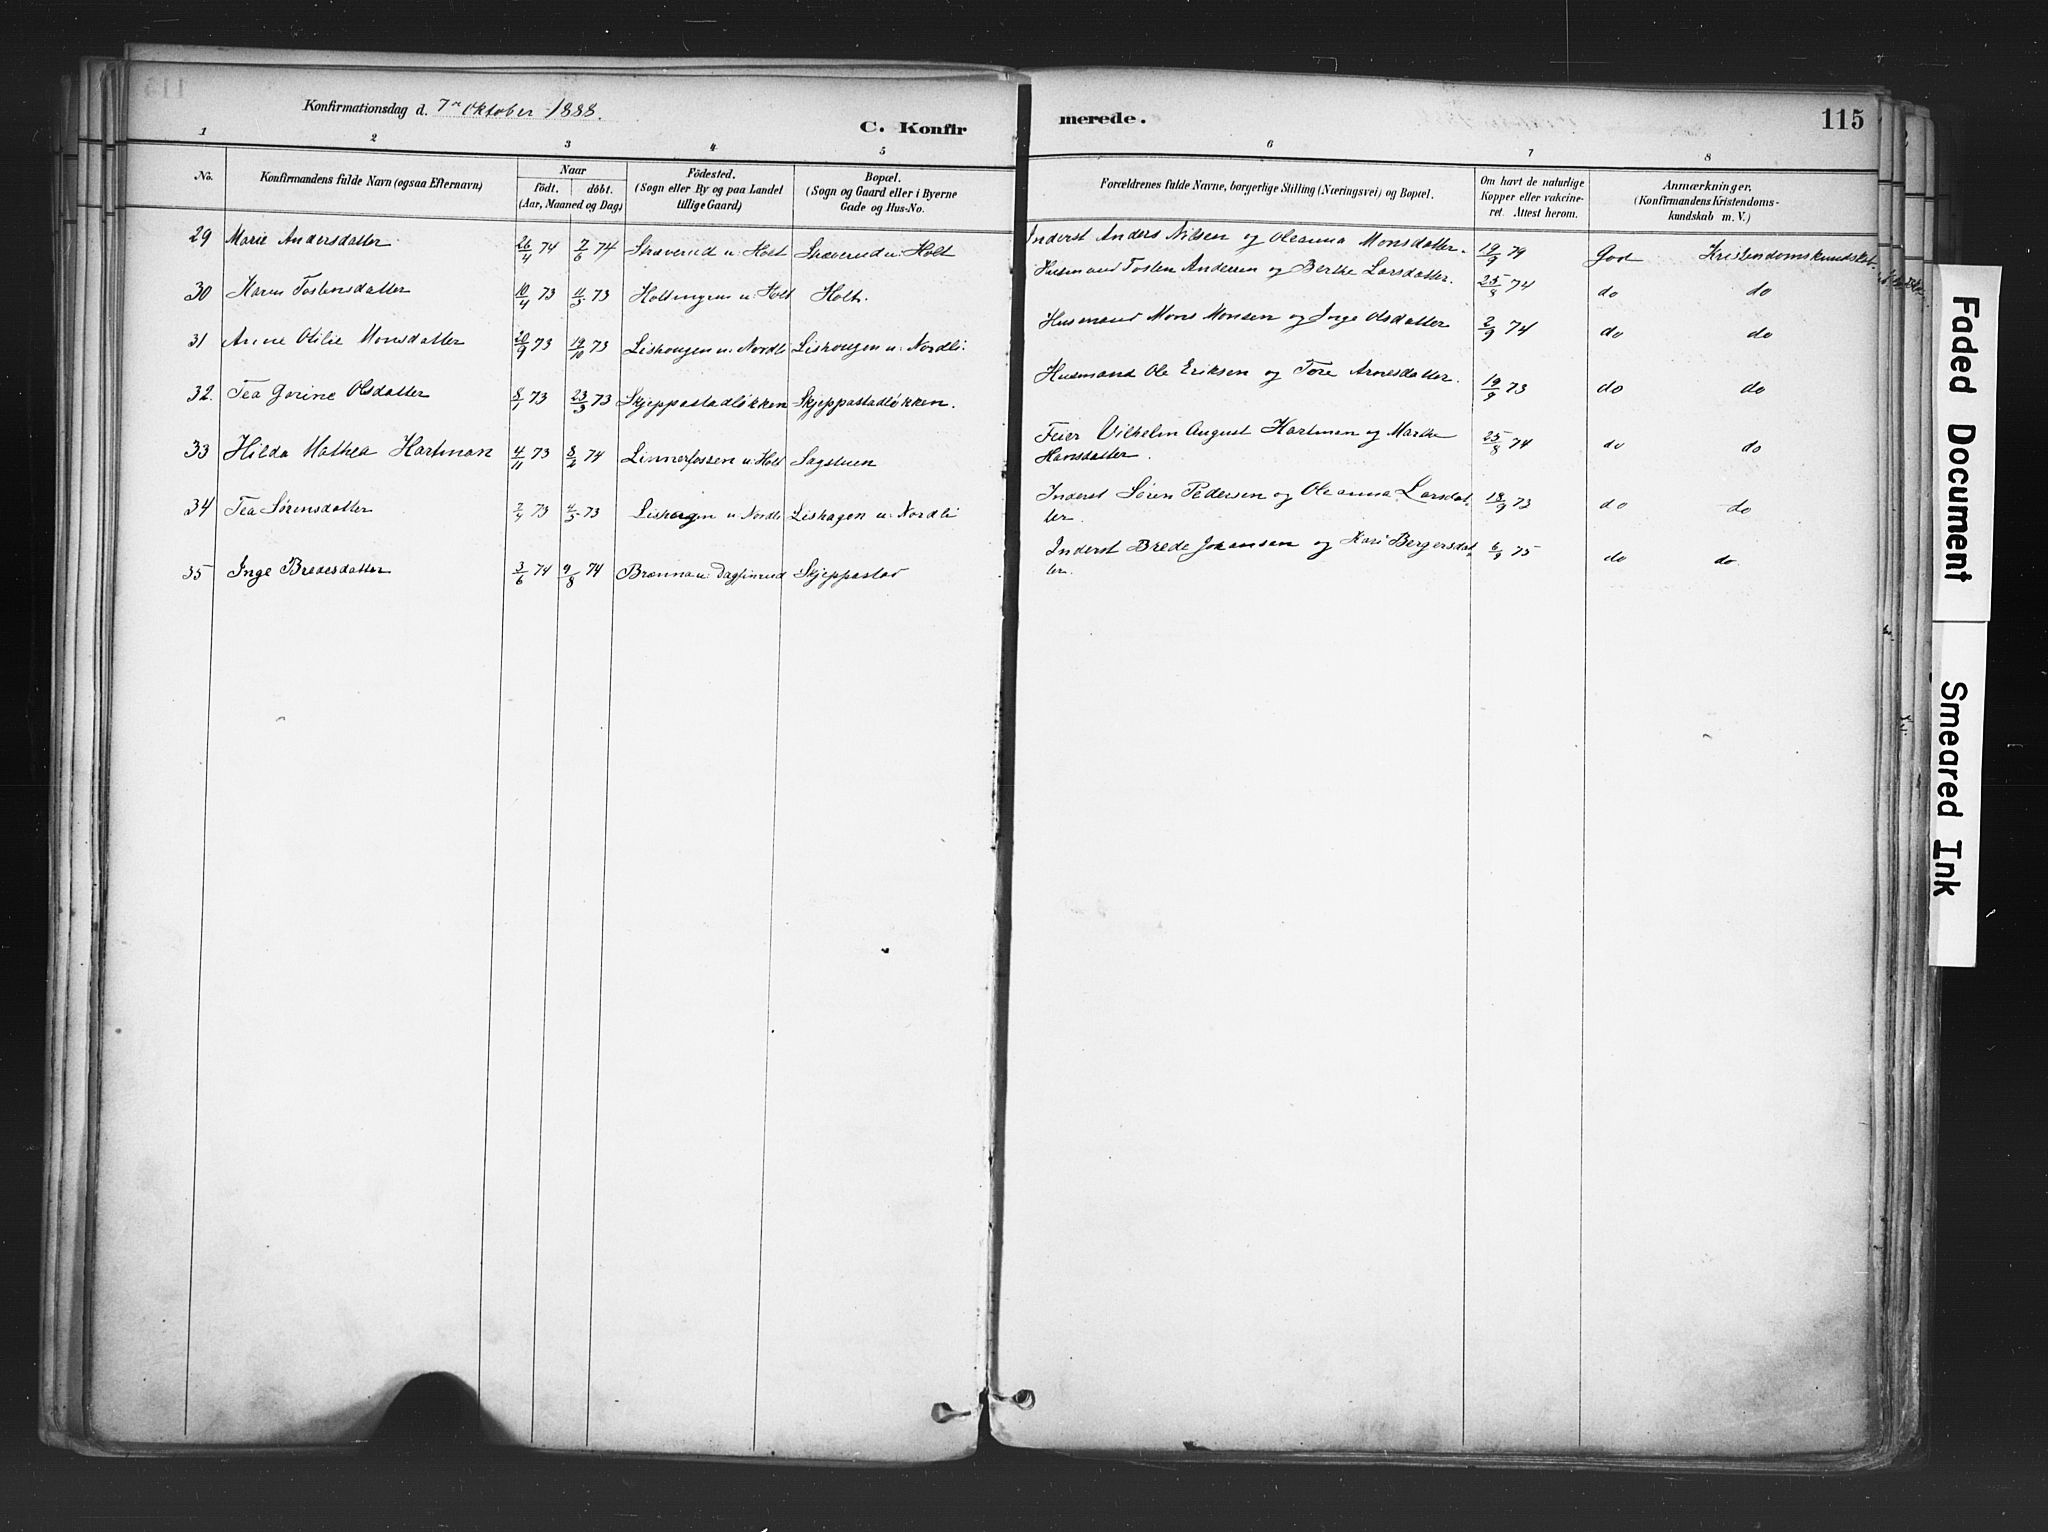 Konfirmationsdag d. 7de Oktober 1888.
C. Konfirmerede.
115
1 2 3 4 5 6 7 8
No.
Konfirmandens fulde Navn (ogsaa Efternavn)
Naar
født. døbt.
(Aar, Maaned og Dag)
Fødested.
(Sogn eller By og paa Landet
tillige Gaard)
Bopæl.
(Sogn og Gaard eller i Byerne
Gade og Hus-No.
Forældrenes fulde Navne, borgerlige Stilling (Næringsvei) og Bopæl.
Om havt de naturlige
Kopper eller vakcine-
ret. Attest herom.
Anmærkninger.
(Konfirmandens Kristendoms-
kundskab m. V.)
29 Marie Andersdatter 26/4 74 7/6 74 Stræverud u: Holt Stræverud u: Holt Inderst Anders Nilsen og Oleanna Monsdatter. 19/9 79 God Kristendomskundskab
30 Maren Tostensdatter 10/4 73 11/5 73 Holteengen u: Holt Holt. Husmand Tosten Andersen og Berthe Larsdatter. 25/8 74 do do
31 Anne Otilie Monsdatter 20/9 73 19/10 73 Lishougen u: Nordli Lishougen u: Nordli. Husmand Mons Monsen og Inge Olsdatter 2/9 74 do do
32. Tea Gorine Olsdatter 8/1 73 23/3 73 Skjeppestadløkken Skjeppestadløkken. Husmand Ole Eriksen og Tore Arnesdatter. 19/9 73 do do
33 Hilda Mathea Hartman 4/11 73 8/2 74 Linnerfossen u: Holt Sagstuen Feier Vilhelm August Hartman og Marthe
Hansdatter. 25/8 74 do do
34 Tea Sørensdatter 7/4 73 4/5 73 Lishagen u: Nordli Lishagen u: Nordli Inderst Søren Pedersen og Oleanna Larsdat-
ter. 18/9 73 do do
35 Inge Bredesdatter 3/6 74 9/8 74 Brænna u: Dagfinrud Skjeppestad Inderst Brede Johansen og Kari Bergersdat-
ter. 6/9 75 do do.
Faded Document
Smeared Ink